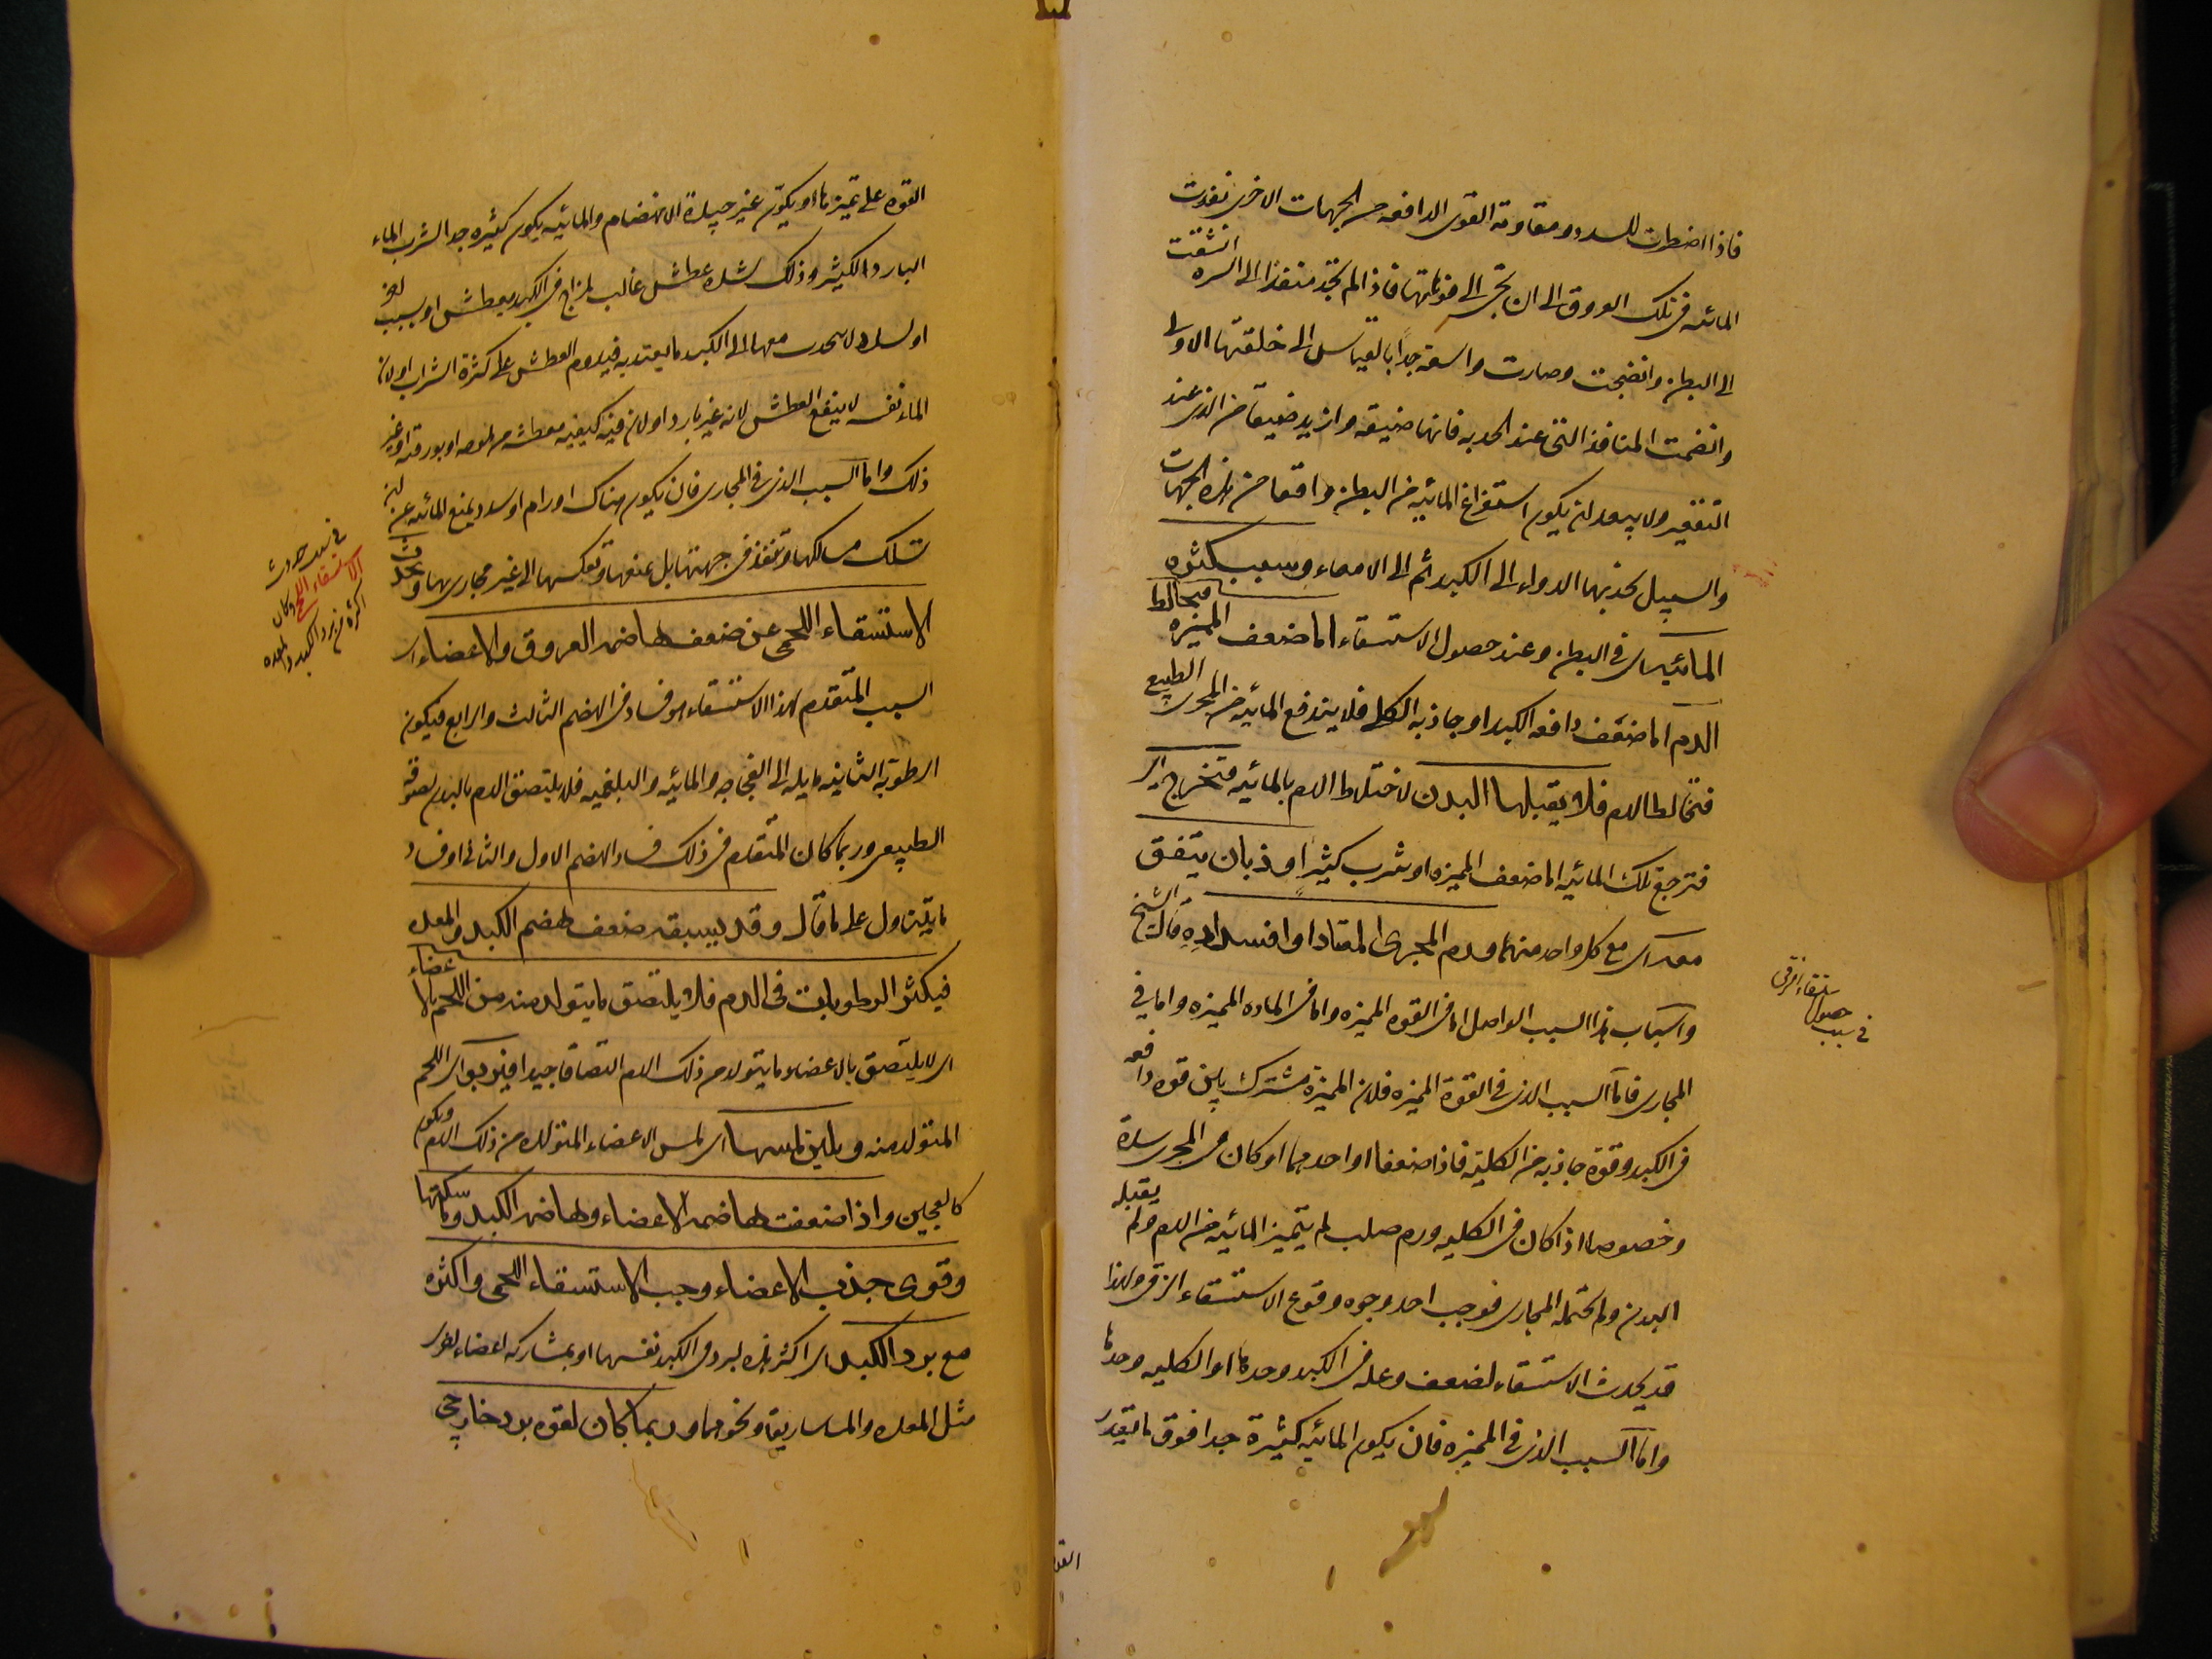 فاذا اضطرت للسدد ومقاومة القوى الدافعه من الجهات الاخرى نفذت
المائيه فى تلك العروق الى ان تجئ الى فوهاتها فاذا لم تجد منفذا الى السره انشقت
الى البطن وانفتحت وصارت واسعة جدا بالقياس الى خلقتها الاولى
وانضمت المنافذ التى عند الحدبه فانها ضيقه وازيد ضيقا من الذى عند
التقعير ولا يبعد ان يكون استفراغ المائيه من البطن واقعا من هذه الجهات
والسبيل يجذبها الدواء الى الكبد ثم الى الامعاء وسبب كثره
المائيه اى فى البطن وعند حصول الاستسقاء اما ضعف المميزه فيخالط
الدم اما ضعف دافعه الكبد او جاذبه الكلى فلا يندفع المائيه من المجرى الطبيعى
فتخالط الدم فلا يقبلها البدن لاختلاط الدم بالمائيه فتخرج اى
فترجع تلك المائيه اما ضعف المميزه او شرب كثير او ذبان يتفق
معه اى مع كل واحد منهما ورم المجرى المعتاد او انسداده قال الشيخ
واسباب هذا السبب الواصل اما فى القوه المميزه واما فى الماده المميزه واما فى
المجارى فاما السبب الذى فى القوة المميزه فلان المميزة مشترك بين قوه دافعه
فى الكبد وقوة جاذبه من الكلية فاذا ضعفا او احدهما او كان فى المجرى سدة
وخصوصا اذا كان فى الكليه ورم صلب لم يتميز المائيه من الدم ولم يقبله
البدن ولم تحتمله المجارى فوجب احد وجوه وقوع الاستسقاء الزقى ولهذا
قد يحدث الاستسقاء لضعف وعله فى الكبد وحدها او الكليه وحدها
واما السبب الذى فى المميزه فان يكون المائيه كثيرة جدا فوق ما تقدر
فى سبب حصول استسقاء الزقى
القوه على تميزها او يكون غير جيدة الانهضام والمائيه يكون كثيره جدا لشرب الماء
البارد الكثير وذلك لشده عطش غالب لمزاج فى الكبد معطش او بسبب اخر
او لسدد لا ينجذب معها الى الكبد ما يعتد به فيدوم العطش على كثرة الشراب او لان
الماء نفسه لا ينفع العطش لانه غير بارد او لان فيه كيفيه معطشه من ملوحه او بورقيه او غير
ذلك واما السبب الذى فى المجارى فان يكون هناك اورام او سدد يمنع المائيه عن ان
تسلك مسالكها وتنفذ فى جهتها بل يمنعها وتعكسها الى غير مجاريها ويحدث
الاستسقاء اللحمى عن ضعف هاضمه العروق والاعضاء اى
السبب المتقدم لهذا الاستسقاء هو فساد فى الهضم الثالث والرابع فيكون
الرطوبه الثانيه مايله الى الفجاجه والمائيه والبلغميه فلا يلتصق الدم بالبدن لصوقه
الطبيعى وربما كان المتقدم فى ذلك فساد الهضم الاول والثانى او فساد
ما يتناول على ما قال وقد يسبقه ضعف هضم الكبد والمعده
فيكثر الرطوبات فى الدم فلا يلتصق ما يتولد منه من اللحم بالاعضاء
اى لا يلتصق بالاعضاء ما يتولد من ذلك الدم التصاقا جيدا فيربو اى اللحم
المتولد منه ويلين لمسها اى لمس الاعضاء المتولده من ذلك الدم ويكون
كالعجين واذا ضعفت هاضمه الاعضاء وهاضمه الكبد وماسكتها
وقوى جذب الاعضاء وجب الاستسقاء اللحمى واكثره
مع برد الكبد اى اكثر هذه لبرد فى الكبد نفسها او بمشاركه اعضاء اخرى
مثل المعده والماساريقا ونحوهما وربما كان لقوه برد خارجى
فى سبب حدوث
الاستسقاء اللحمى وكان
اكثره من برد الكبد والمعده
القوه